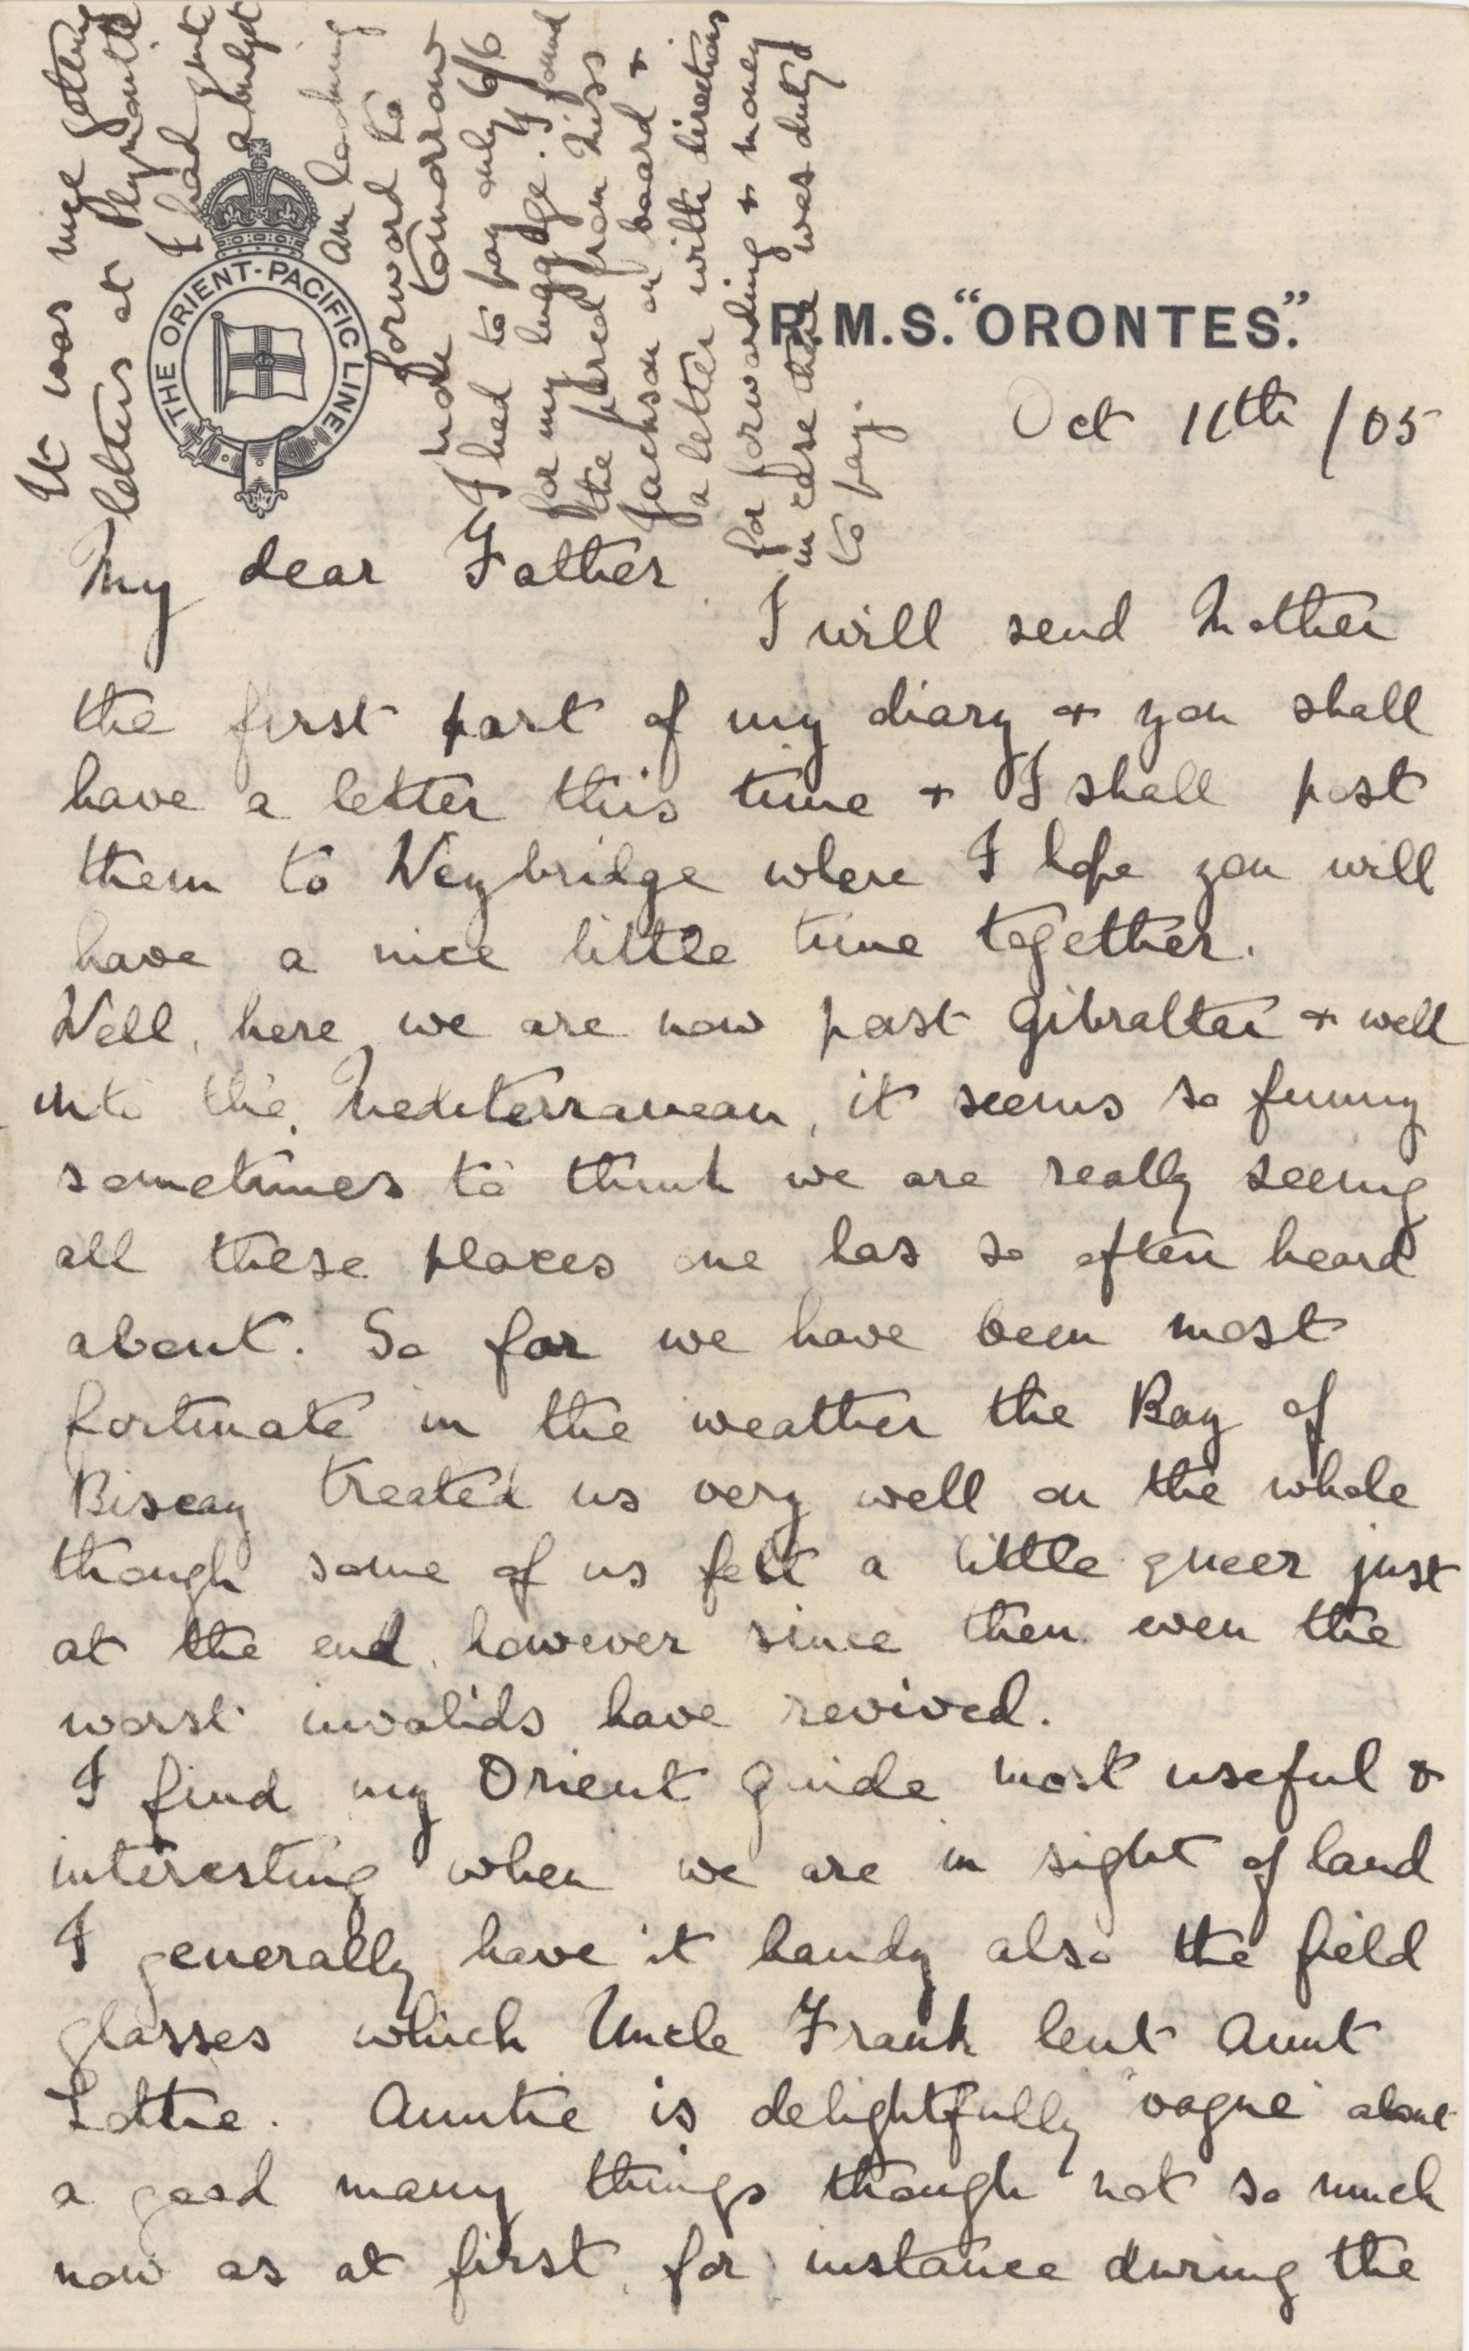 It was nice getting
letters at Plymouth
I had quite
a budget
am looking
forward to
more tomorrow
I had to pay only 6/6
for my luggage. I found
the parcel from Miss
Jackson on board &
a letter with directions
for forwarding & money
in case there was duty
to pay.
THE ORIENT-PACIFIC LINE
R.M.S. "ORONTES."
Oct 11th /05
My dear Father
I will send Mother
the first part of my diary & you shall
have a letter this time & I shall post
them to Weybridge where I hope you will
have a nice little time together.
Well, here we are now past Gibralter & well
into the Mediterranean, it seems so funny
sometimes to think we are really seeing
all these places one has so often heard
about. So far we have been most
fortunate in the weather the Bay of
Biscay treated us very well on the whole
though some of us felt a little queer just
at the end, however since then even the
worst invalids have revived.
I find my Orient Guide most useful &
interesting when we are in sight of land
I generally have it handy also the field
glasses which Uncle Frank lent Aunt
Lottie. Auntie is delightfully "vague" about
a good many things though not so much
now as at first, for instance during the